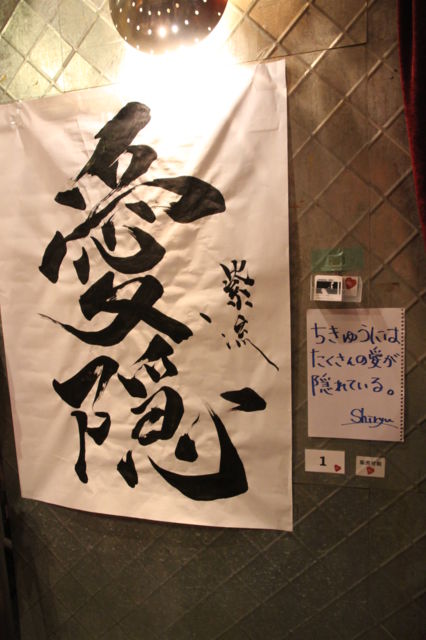 愛
隠
紫流
ちきゅうには
たくさんの愛が
隠れている。
Shiryu
1